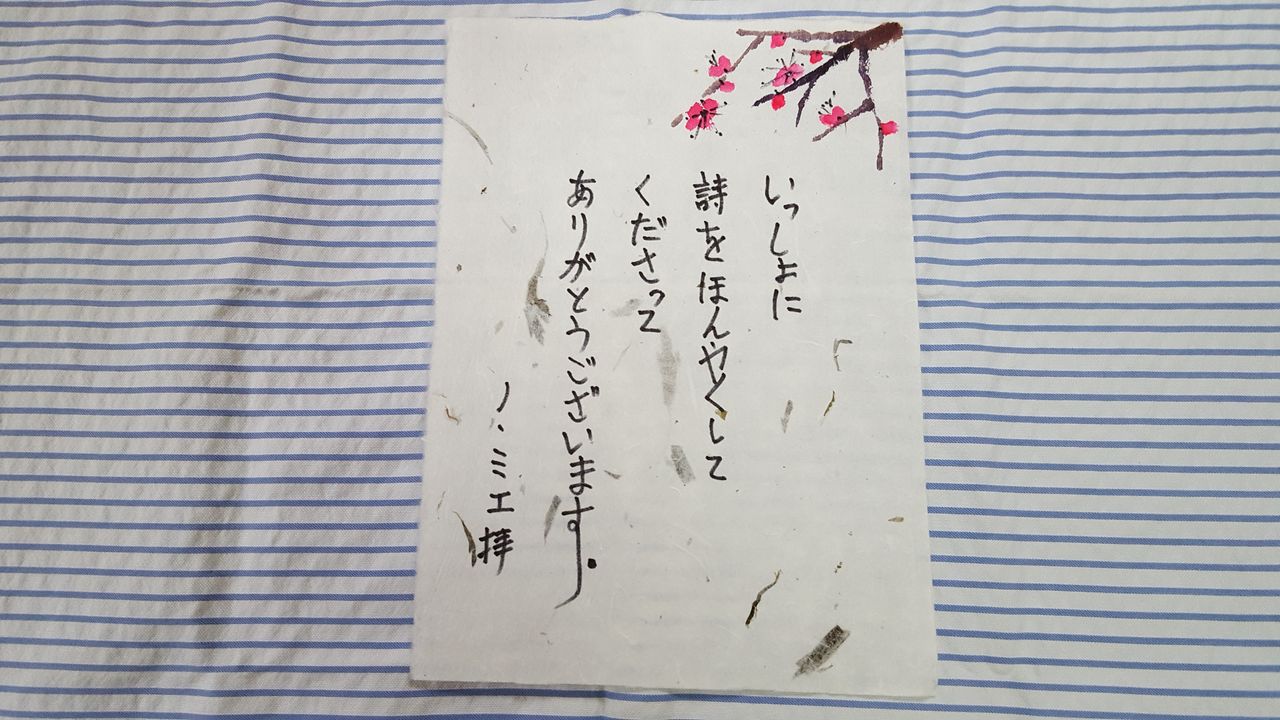 いっしょに
詩をほんやくして
くださって
ありがとうございます.
ノ・ミエ拝